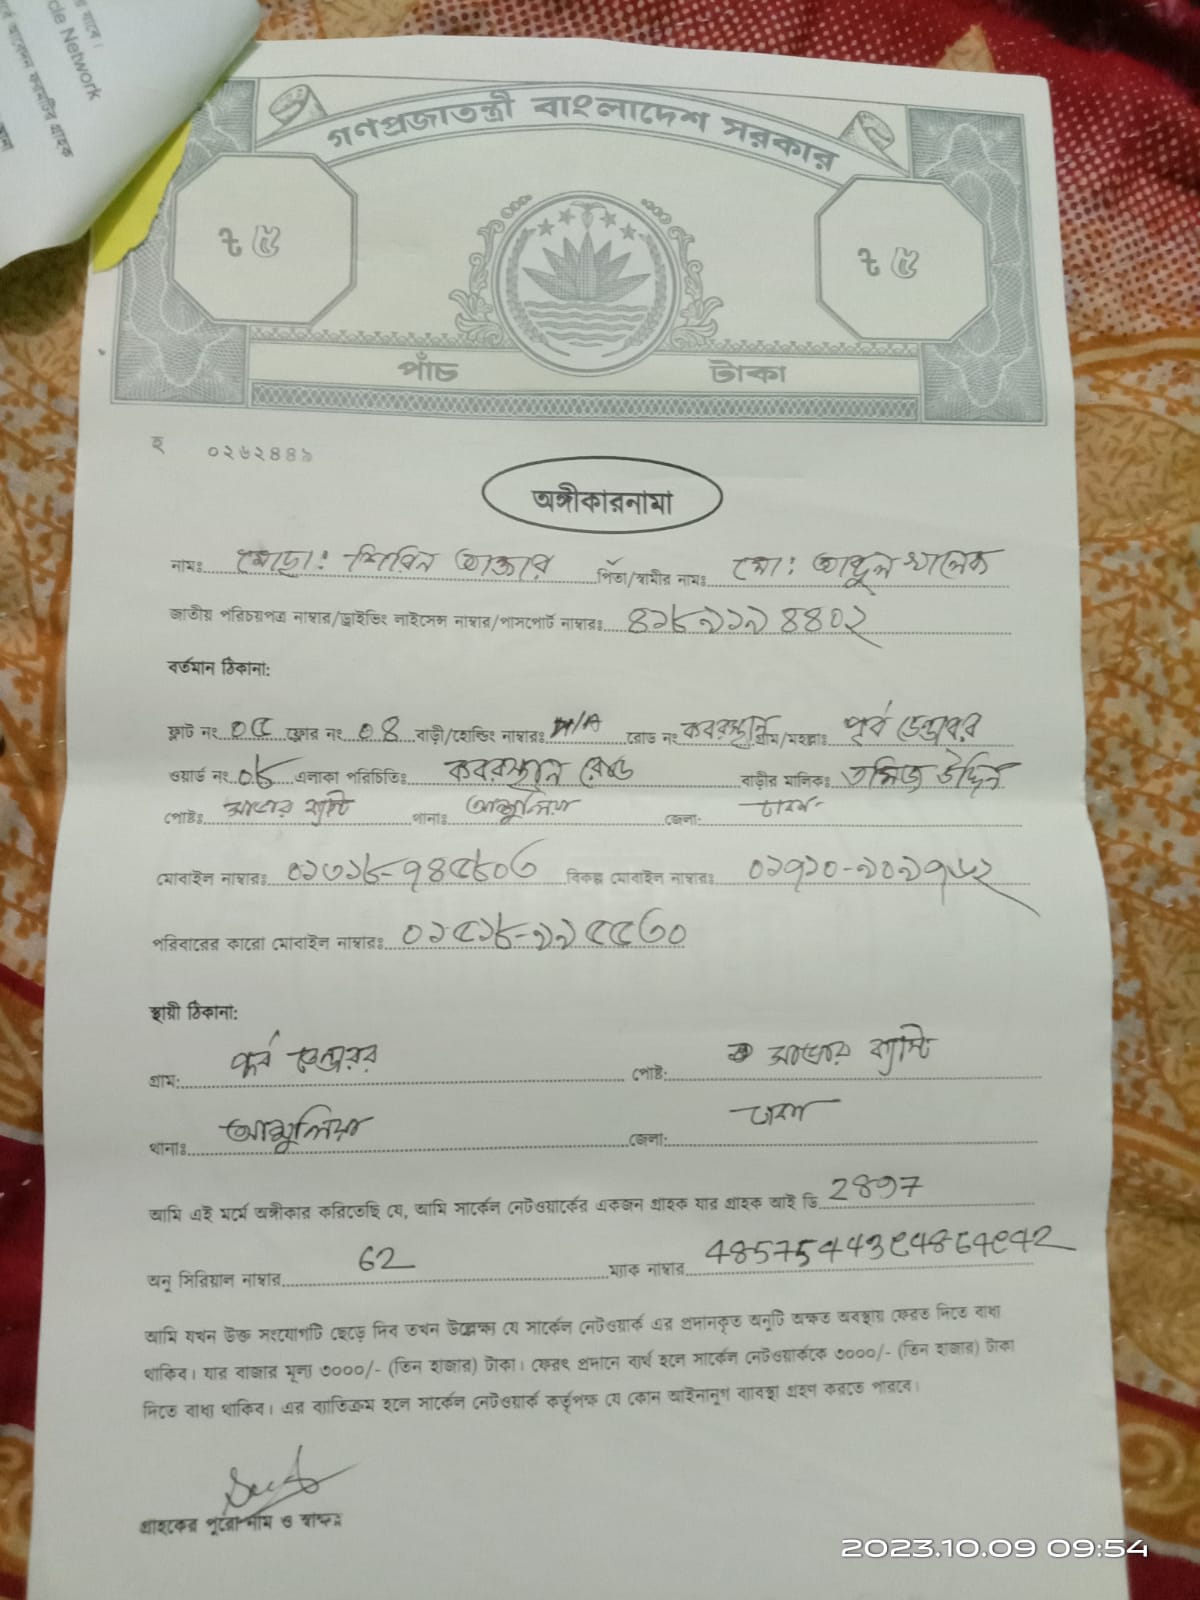 যাবে।
cle Network
গণপ্রজাতন্ত্রী বাংলাদেশ সরকার
৳ ৫ ৳ ৫
পাঁচ টাকা
হ ০২৬২৪৪৯
অঙ্গীকারনামা
নামঃ মোছা: শিরিন আক্তার পিতা/স্বামীর নামঃ মো: আব্দুল খালেক
জাতীয় পরিচয়পত্র নাম্বার/ড্রাইভিং লাইসেন্স নাম্বার/পাসপোর্ট নাম্বারঃ ৪১৮৯১৯৪৪০২
বর্তমান ঠিকানা:
ফ্লাট নং ০৫ ফ্লোর নং ০৪ বাড়ী/হোল্ডিং নাম্বারঃ N/A রোড নং কবরস্থান গ্রাম/মহল্লাঃ পূর্ব ডেন্ডাবর
ওয়ার্ড নং ০৮ এলাকা পরিচিতিঃ কবরস্থান রোড বাড়ীর মালিকঃ তমিজ উদ্দিন
পোষ্টঃ সাভার ক্যান্ট থানাঃ আশুলিয়া জেলা: ঢাকা
মোবাইল নাম্বারঃ ০১৩১৮-৭৪৫৮০৩ বিকল্প মোবাইল নাম্বারঃ ০১৭১০-৯০৯৭৬২
পরিবারের কারো মোবাইল নাম্বারঃ ০১৫১৮-৯৯৫৫৩০
স্থায়ী ঠিকানা:
গ্রাম: পূর্ব ডেন্ডাবর পোষ্ট: সাভার ক্যান্ট
থানাঃ আশুলিয়া জেলা: ঢাকা
আমি এই মর্মে অঙ্গীকার করিতেছি যে, আমি সার্কেল নেটওয়ার্কের একজন গ্রাহক যার গ্রাহক আই ডি 2897
অনু সিরিয়াল নাম্বার 62 ম্যাক নাম্বার
আমি যখন উক্ত সংযোগটি ছেড়ে দিব তখন উল্লেক্ষা যে সার্কেল নেটওয়ার্ক এর প্রদানকৃত অনুটি অক্ষত অবস্থায় ফেরত দিতে বাধ্য
থাকিব। যার বাজার মূল্য ৩০০০/- (তিন হাজার) টাকা। ফেরৎ প্রদানে ব্যর্থ হলে সার্কেল নেটওয়ার্ককে ৩০০০/- (তিন হাজার) টাকা
দিতে বাধ্য থাকিব। এর ব্যতিক্রম হলে সার্কেল নেটওয়ার্ক কর্তৃপক্ষ যে কোন আইনানুগ ব্যবস্থা গ্রহণ করতে পারবে।
গ্রাহকের পুরো নাম ও স্বাক্ষর
2023.10.09 09:54